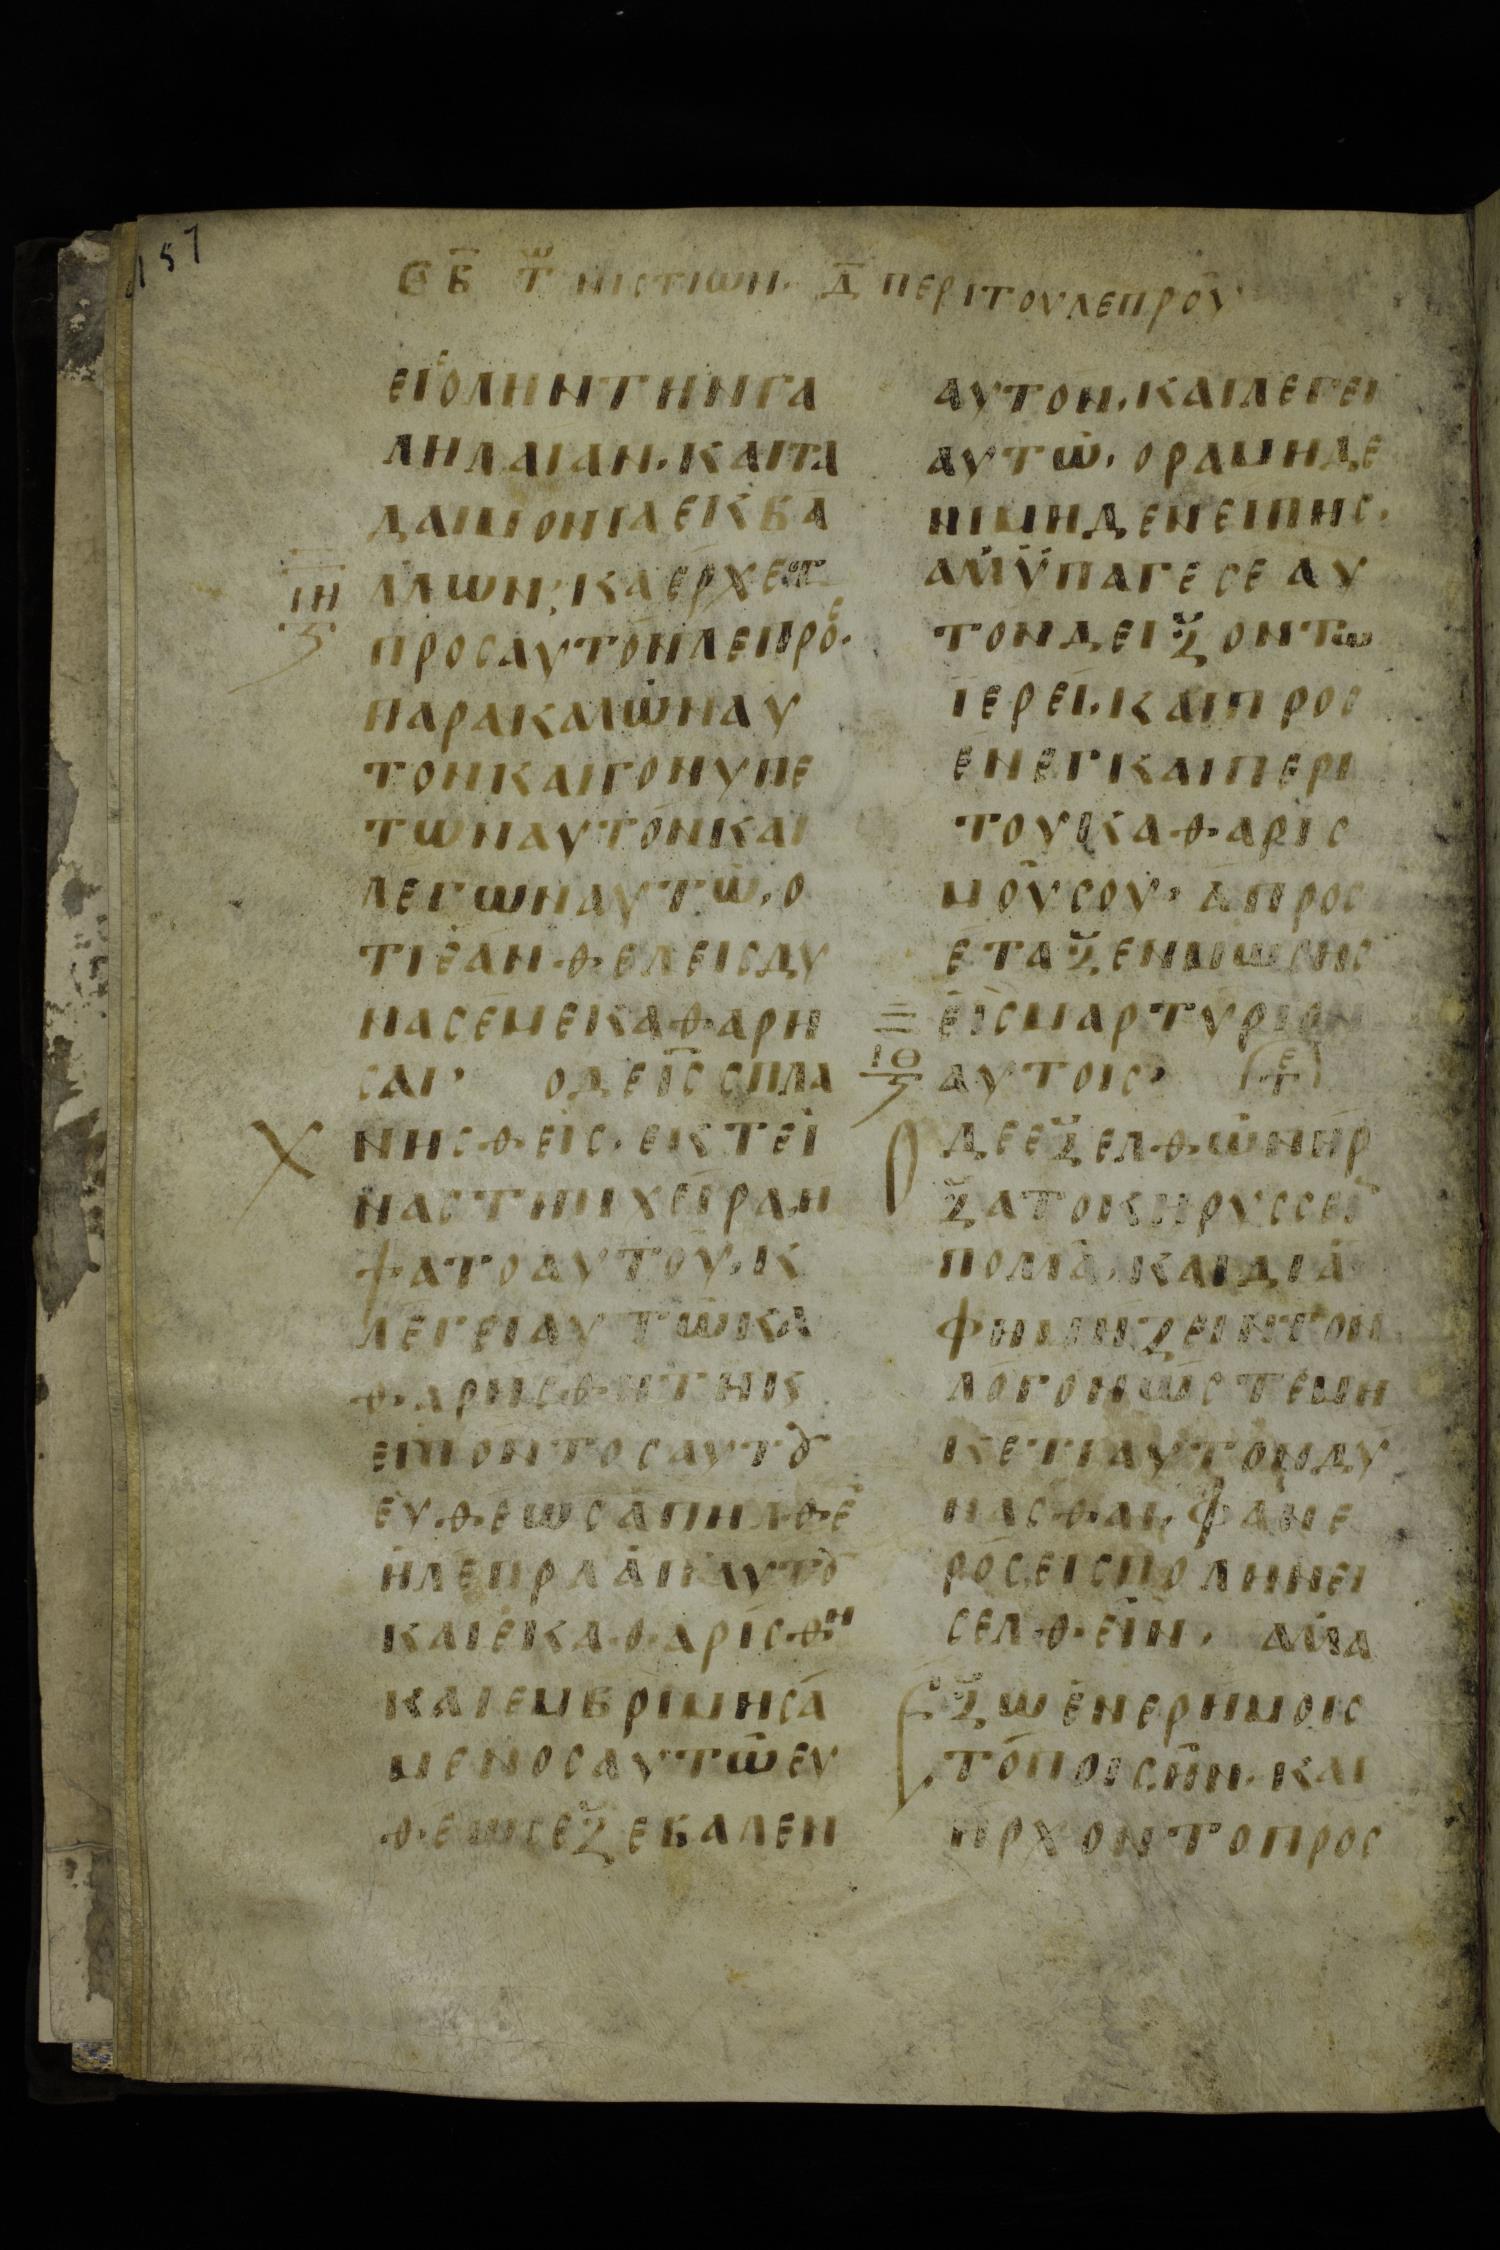 157
ⲤⲂ ΤѠ ΝΙϹΤΙѠΝ· Δ ΠΕΡΙΤΟΥΛΕΠΡΟΥ
ΕΙϹΟΛΗΝΤΗΝΓΑ
ΛΗΛΑΙΑΝ· ΚΑΙΤΑ
ΔΑΙΜΟΝΙΑΕΚΒΑ
ΛΛѠΝ· ΚΑΕΡΧΕΤ
ΙΗ
ΠΡΟϹΑΥΤΟΝΛΕΠΡΟϹ·
ΠΑΡΑΚΑΛѠΝΑΥ
ΤΟΝΚΑΙΓΟΝΥΠΕ
ΤѠΝΑΥΤΟΝΚΑΙ
ΛΕΓѠΝΑΥΤѠ· Ο
ΤΙΕΑΝΘΕΛΕΙϹΔΥ
ΝΑϹΕΜΕΚΑΘΑΡΗ
ϹΑΙ· ΟΔΕΙϹϹΠΛΑ
ΝΗϹΘΕΙϹ· ΕΚΤΕΙ
ΝΑϹΤΗΝΧΕΙΡΑΗ
ΨΑΤΟΑΥΤΟΥ· Κ
ΛΕΓΕΙΑΥΤѠΚΑ
ΘΑΡΗϹΘΗΤΗΚ
ΕΙΠΟΝΤΟϹΑΥΤȢ
ΕΥΘΕѠϹΑΠΗΛΘΕ
ΗΛΕΠΡΑΑΠΑΥΤȢ
ΚΑΙΕΚΑΘΑΡΙϹΘΗ
ΚΑΙΕΜΒΡΙΜΗϹΑ
ΜΕΝΟϹΑΥΤѠΕΥ
ΘΕѠϹΕΞΕΒΑΛΕΝ
ΑΥΤΟΝ· ΚΑΙΛΕΓΕΙ
ΑΥΤѠ· ΟΡΑΜΗΔΕ
ΝΙΜΗΔΕΝΕΙΠΗϹ·
ΑΛΛΥΠΑΓΕϹΕΑΥ
ΤΟΝΔΕΙΞΟΝΤѠ
ΙΕΡΕΙ· ΚΑΙΠΡΟϹ
ΕΝΕΓΚΑΙΠΕΡΙ
ΤΟΥΚΑΘΑΡΙϹ
ΜΟΥϹΟΥ· ΑΠΡΟϹ
ΕΤΑΞΕΝΜѠϹΗϹ
ΕΙϹΜΑΡΤΥΡΙΟΝ
ΙΘ
ΑΥΤΟΙϹ· ΤΕ
Ο ΔΕΕΞΕΛΘѠΝΗΡ
ΞΑΤΟΚΗΡΥϹϹΕΙ
ΠΟΛΛΑ· ΚΑΙΔΙΑ
ΦΗΜΗΖΕΙΝΤΟΝ
ΛΟΓΟΝѠϹΤΕΜΗ
ΚΕΤΙΑΥΤΟΝΔΥ
ΝΑϹΘΑΙ· ΦΑΝΕ
ΡΟϹΕΙϹΠΟΛΗΝΕΙ
ϹΕΛΘΕΙΝ· ΑΛΛΑ
ΕΞѠΕΝΕΡΗΜΟΙϹ
ΤΟΠΟΙϹΗΝ· ΚΑΙ
ΗΡΧΟΝΤΟΠΡΟϹ